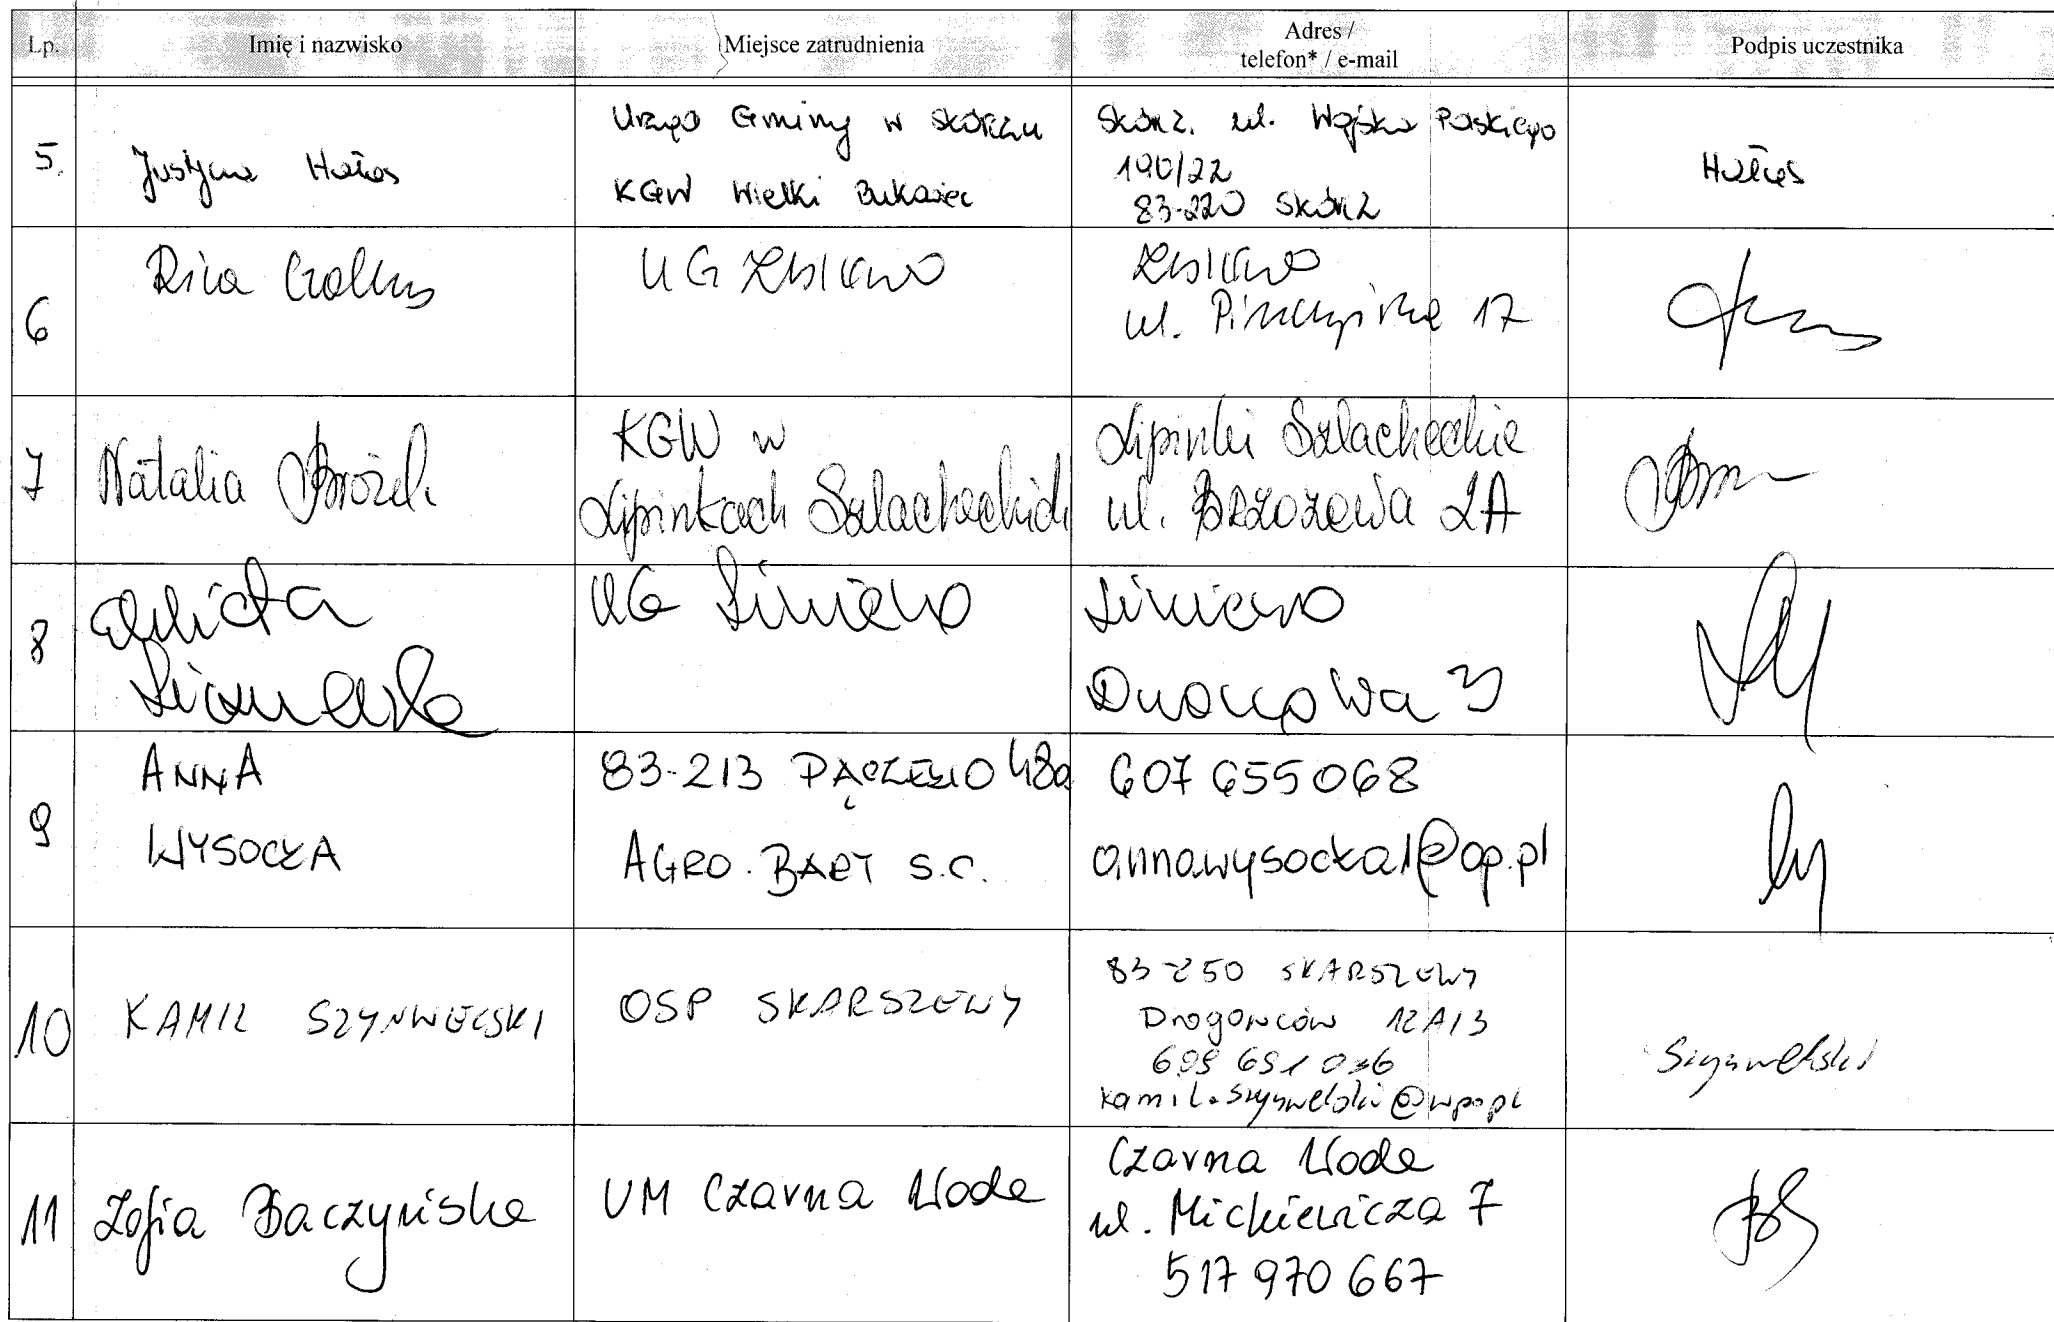 Lp. Imię i nazwisko Miejsce zatrudnienia Adres / telefon* / e-mail Podpis uczestnika
5. Justyna Hałas
Urząd Gminy w Skórczu
KGW Wielki Bukowiec
Skórcz, ul. Wojska Polskiego
190/22
83-220 Skórcz
Hałas
6
UG Zblewo
Zblewo
ul. 17
7 Natalia
KGW w
Lipinkach Szlacheckich
Lipinki Szlacheckie
ul. Brzozowa 2A
8 Elżbieta
UG Liniewo
Liniewo
Dworcowa 3
9 ANNA
WYSOCKA
83-213 PĄCZEWO 48a
AGRO-BART S.C.
607 655 068
annawysocka1@op.pl
10 KAMIL SZYNWELSKI
OSP SKARSZEWY
83-250 SKARSZEWY
Drogowców 12A/3
kamil.szynwelski@wp.pl
Szynwelski
11 Zofia Baczyńska
UM Czarna Woda
Czarna Woda
ul. Mickiewicza 7
517 970 667